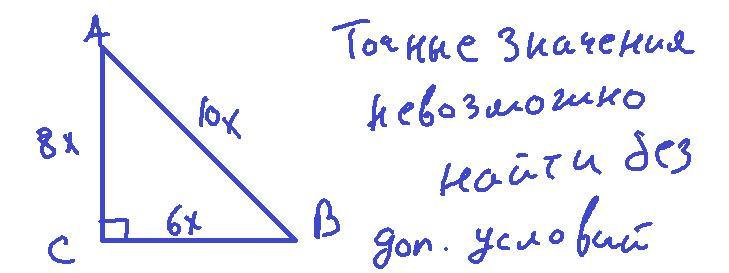 A
8x
10x
6x
C
B
Точные значения
невозможно
найти без
доп. условий